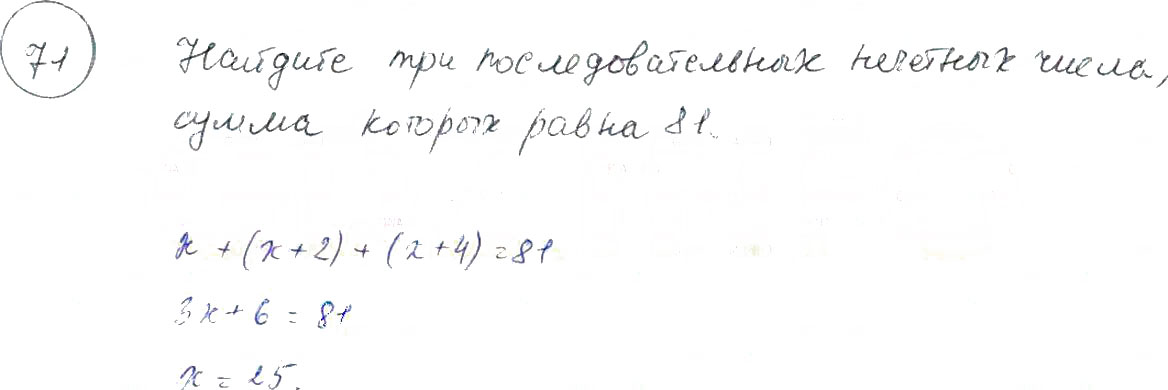 71
Найдите три последовательных нечетных числа,
сумма которых равна 81.
x + (x+2) + (x+4) = 81
3x + 6 = 81
x = 25.